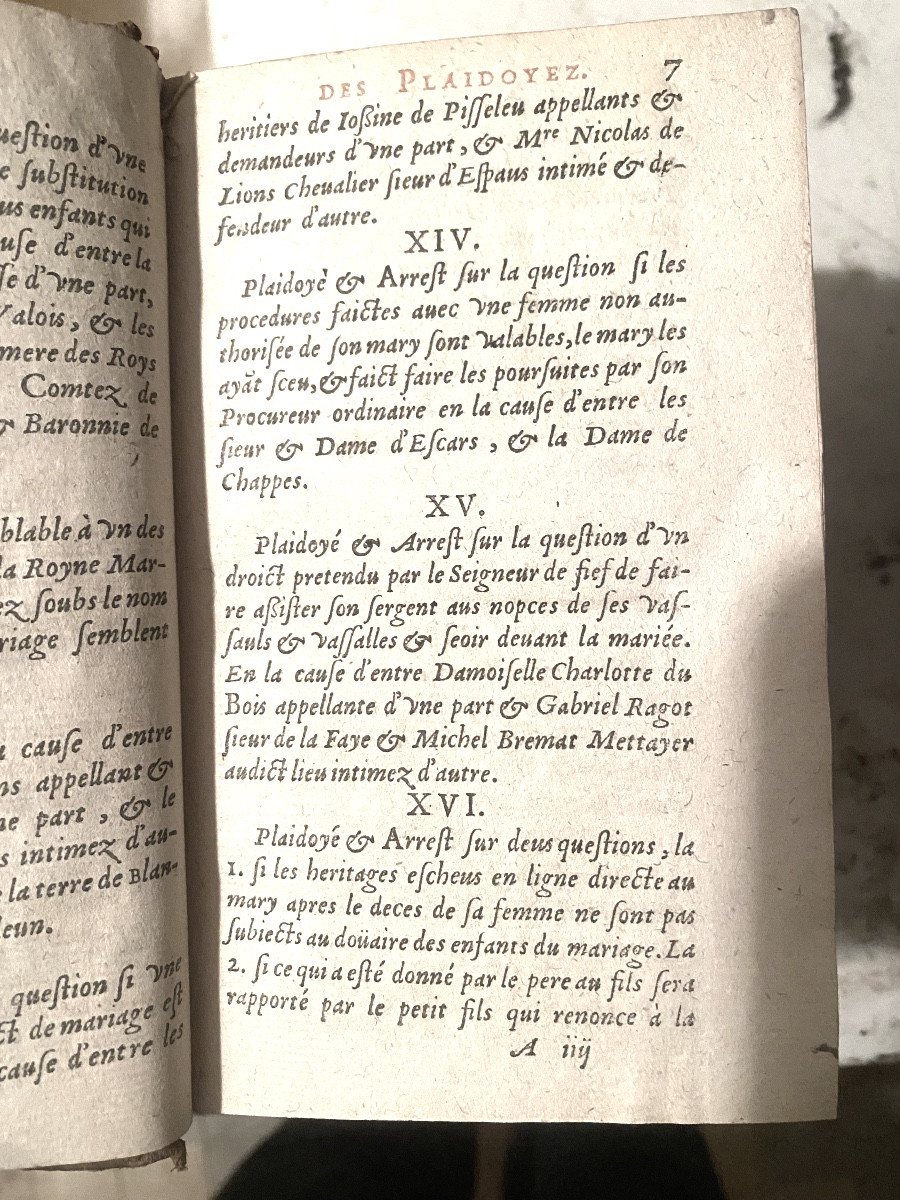 uestion d'vne
e substitution
us enfants qui
use d'entre la
se d'vne part,
Valois, & les
mere des Roys
Comtez de
& Baronnie de
blable à vn des
la Royne Mar-
ez soubs le nom
riage semblent
cause d'entre
ns appellant &
ne part, & le
s intimez d'au-
la terre de Blan-
leun.
question si vne
ct de mariage est
cause d'entre les
DES PLAIDOYEZ. 7
heritiers de Ioßine de Pisseleu appellants &
demandeurs d'vne part, & Mre Nicolas de
Lions Cheualier sieur d'Espaus intimé & de-
fendeur d'autre.
XIV.
Plaidoyè & Arrest sur la question si les
procedures faictes auec vne femme non au-
thorisée de son mary sont valables, le mary les
ayāt sceu, & faict faire les poursuites par son
Procureur ordinaire en la cause d'entre les
sieur & Dame d'Escars, & la Dame de
Chappes.
XV.
Plaidoyé & Arrest sur la question d'vn
droict pretendu par le Seigneur de fief de fai-
re aßister son sergent aus nopces de ses vas-
sauls & vassalles & seoir deuant la mariée.
En la cause d'entre Damoiselle Charlotte du
Bois appellante d'vne part & Gabriel Ragot
sieur de la Faye & Michel Bremat Mettayer
audict lieu intimez d'autre.
XVI.
Plaidoyé & Arrest sur deus questions, la
1. si les heritages escheus en ligne directe au
mary apres le deces de sa femme ne sont pas
subiects au doüaire des enfants du mariage. La
2. si ce qui a esté donné par le pere au fils sera
rapporté par le petit fils qui renonce à la
A iiij